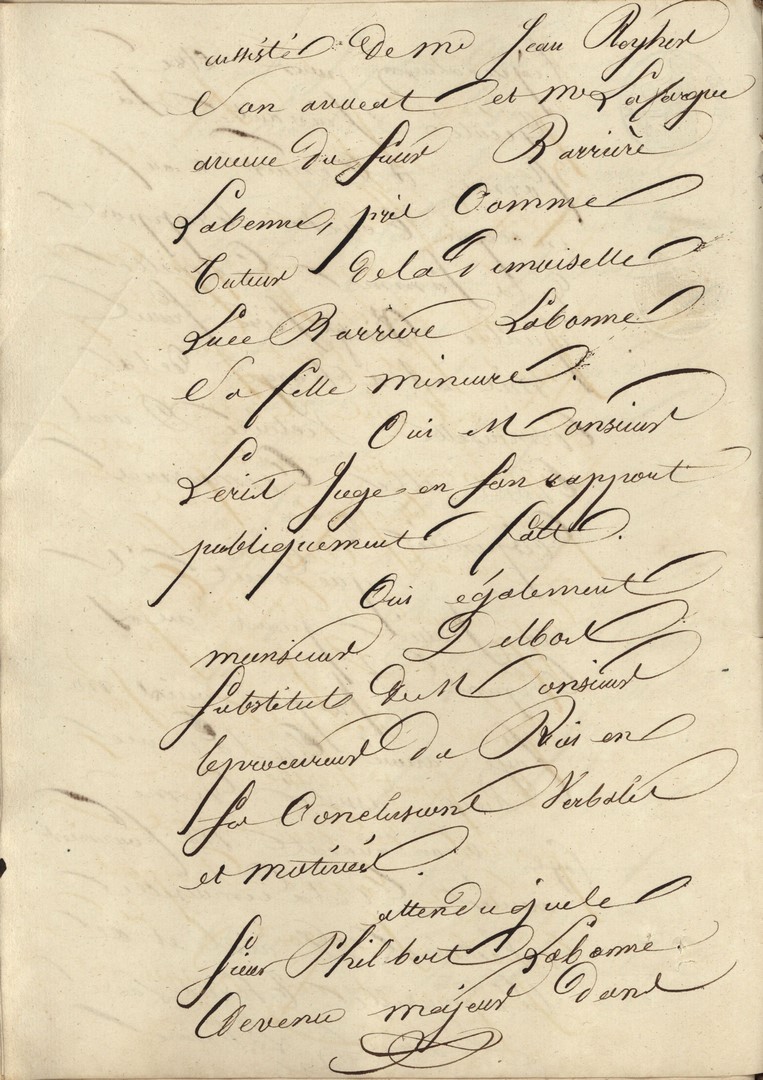 assisté de me Jean Rogher
Son avocat et me Lafargue
avoué du sieur Barrière
Labenne, pris Comme
Tuteur de la Demoiselle
Luce Barrière Labenne
Sa fille mineure.
Oui Monsieur
Juge en son rapport
publiquement fait.
Oui également
monsieur Delbos
Substitut de Monsieur
le procureur du Roi en
Ses Conclusions Verbales
et motivées.
attendu que le
sieur Philbert Labenne
devenu majeur dans